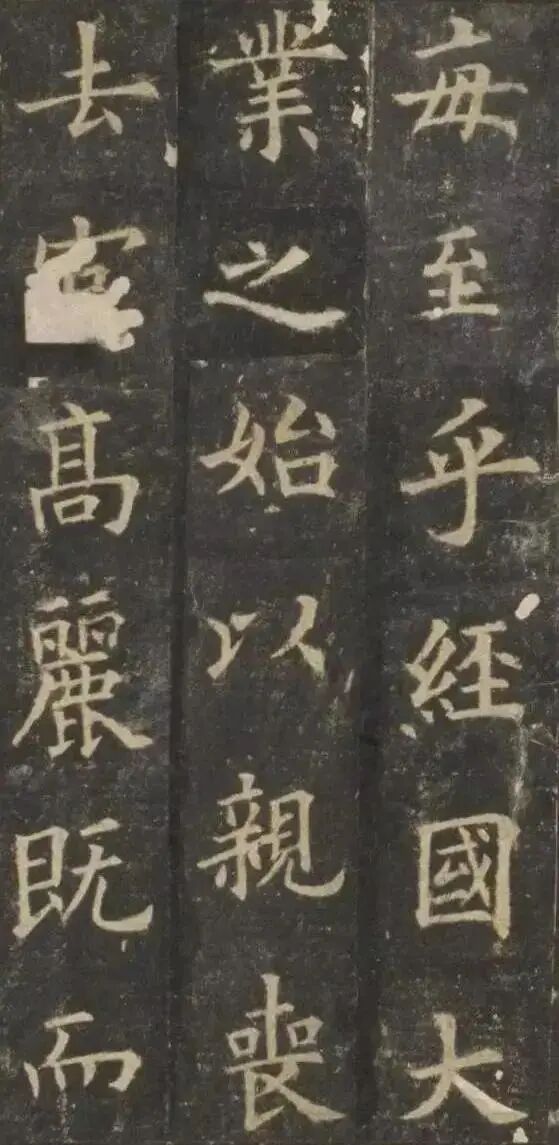 毎至乎經國大
業之始以親喪
去官高麗既而